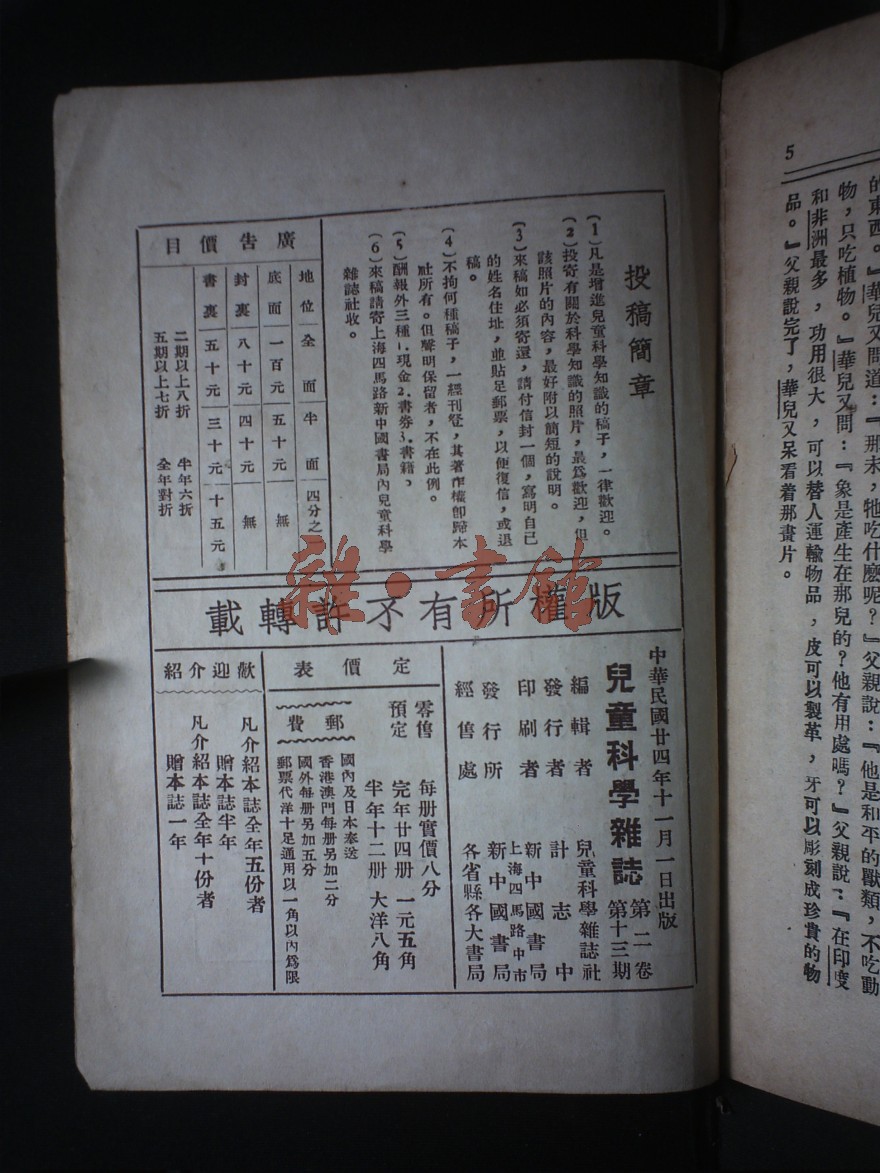 投稿簡章
(1)凡是增進兒童科學知識的稿子，一律歡迎。
(2)投寄有關於科學知識的照片，最爲歡迎，但
該照片的內容，最好附以簡短的說明。
(3)來稿如必須寄還，請付信封一個，寫明自己
的姓名住址，並貼足郵票，以便復信，或退
稿。
(4)不拘何種稿子，一經刊登，其著作權卽歸本
社所有。但聲明保留者，不在此例。
(5)酬報外三種1.現金2.書券3.書籍、
(6)來稿請寄上海四馬路新中國書局內兒童科學
雜誌社收。
廣告價目
地位 全面 半面 四分之一
底面 一百元 五十元 無
封裏 八十元 四十元 無
書裏 五十元 三十元 十五元
二期以上八折 半年六折
五期以上七折 全年對折
版權所有不許轉載
中華民國廿四年十一月一日出版
兒童科學雜誌 第二卷 第十三期
編輯者 兒童科學雜誌社
發行者 計志中
印刷者 新中國書局
上海四馬路中市
發行所 新中國書局
經售處 各省縣各大書局
定價表
零售 每册實價八分
預定 完年廿四册 一元五角
半年十二册 大洋八角
郵費
國內及日本奉送
香港澳門每册另加二分
國外每册另加五分
郵票代洋十足通用以一角以內爲限
獻迎介紹
凡介紹本誌全年五份者
贈本誌半年
凡介紹本誌全年十份者
贈本誌一年
雜·書館
5
的東西。』華兒又問道：『那末，牠吃什麽呢？』父親說：『他是和平的獸類，不吃動
物，只吃植物。』華兒又問：『象是產生在那兒的？他有用處嗎？』父親說：『在印度
和非洲最多，功用很大，可以替人運輸物品，皮可以製革，牙可以彫刻成珍貴的物
品。』父親說完了，華兒又呆看着那畫片。